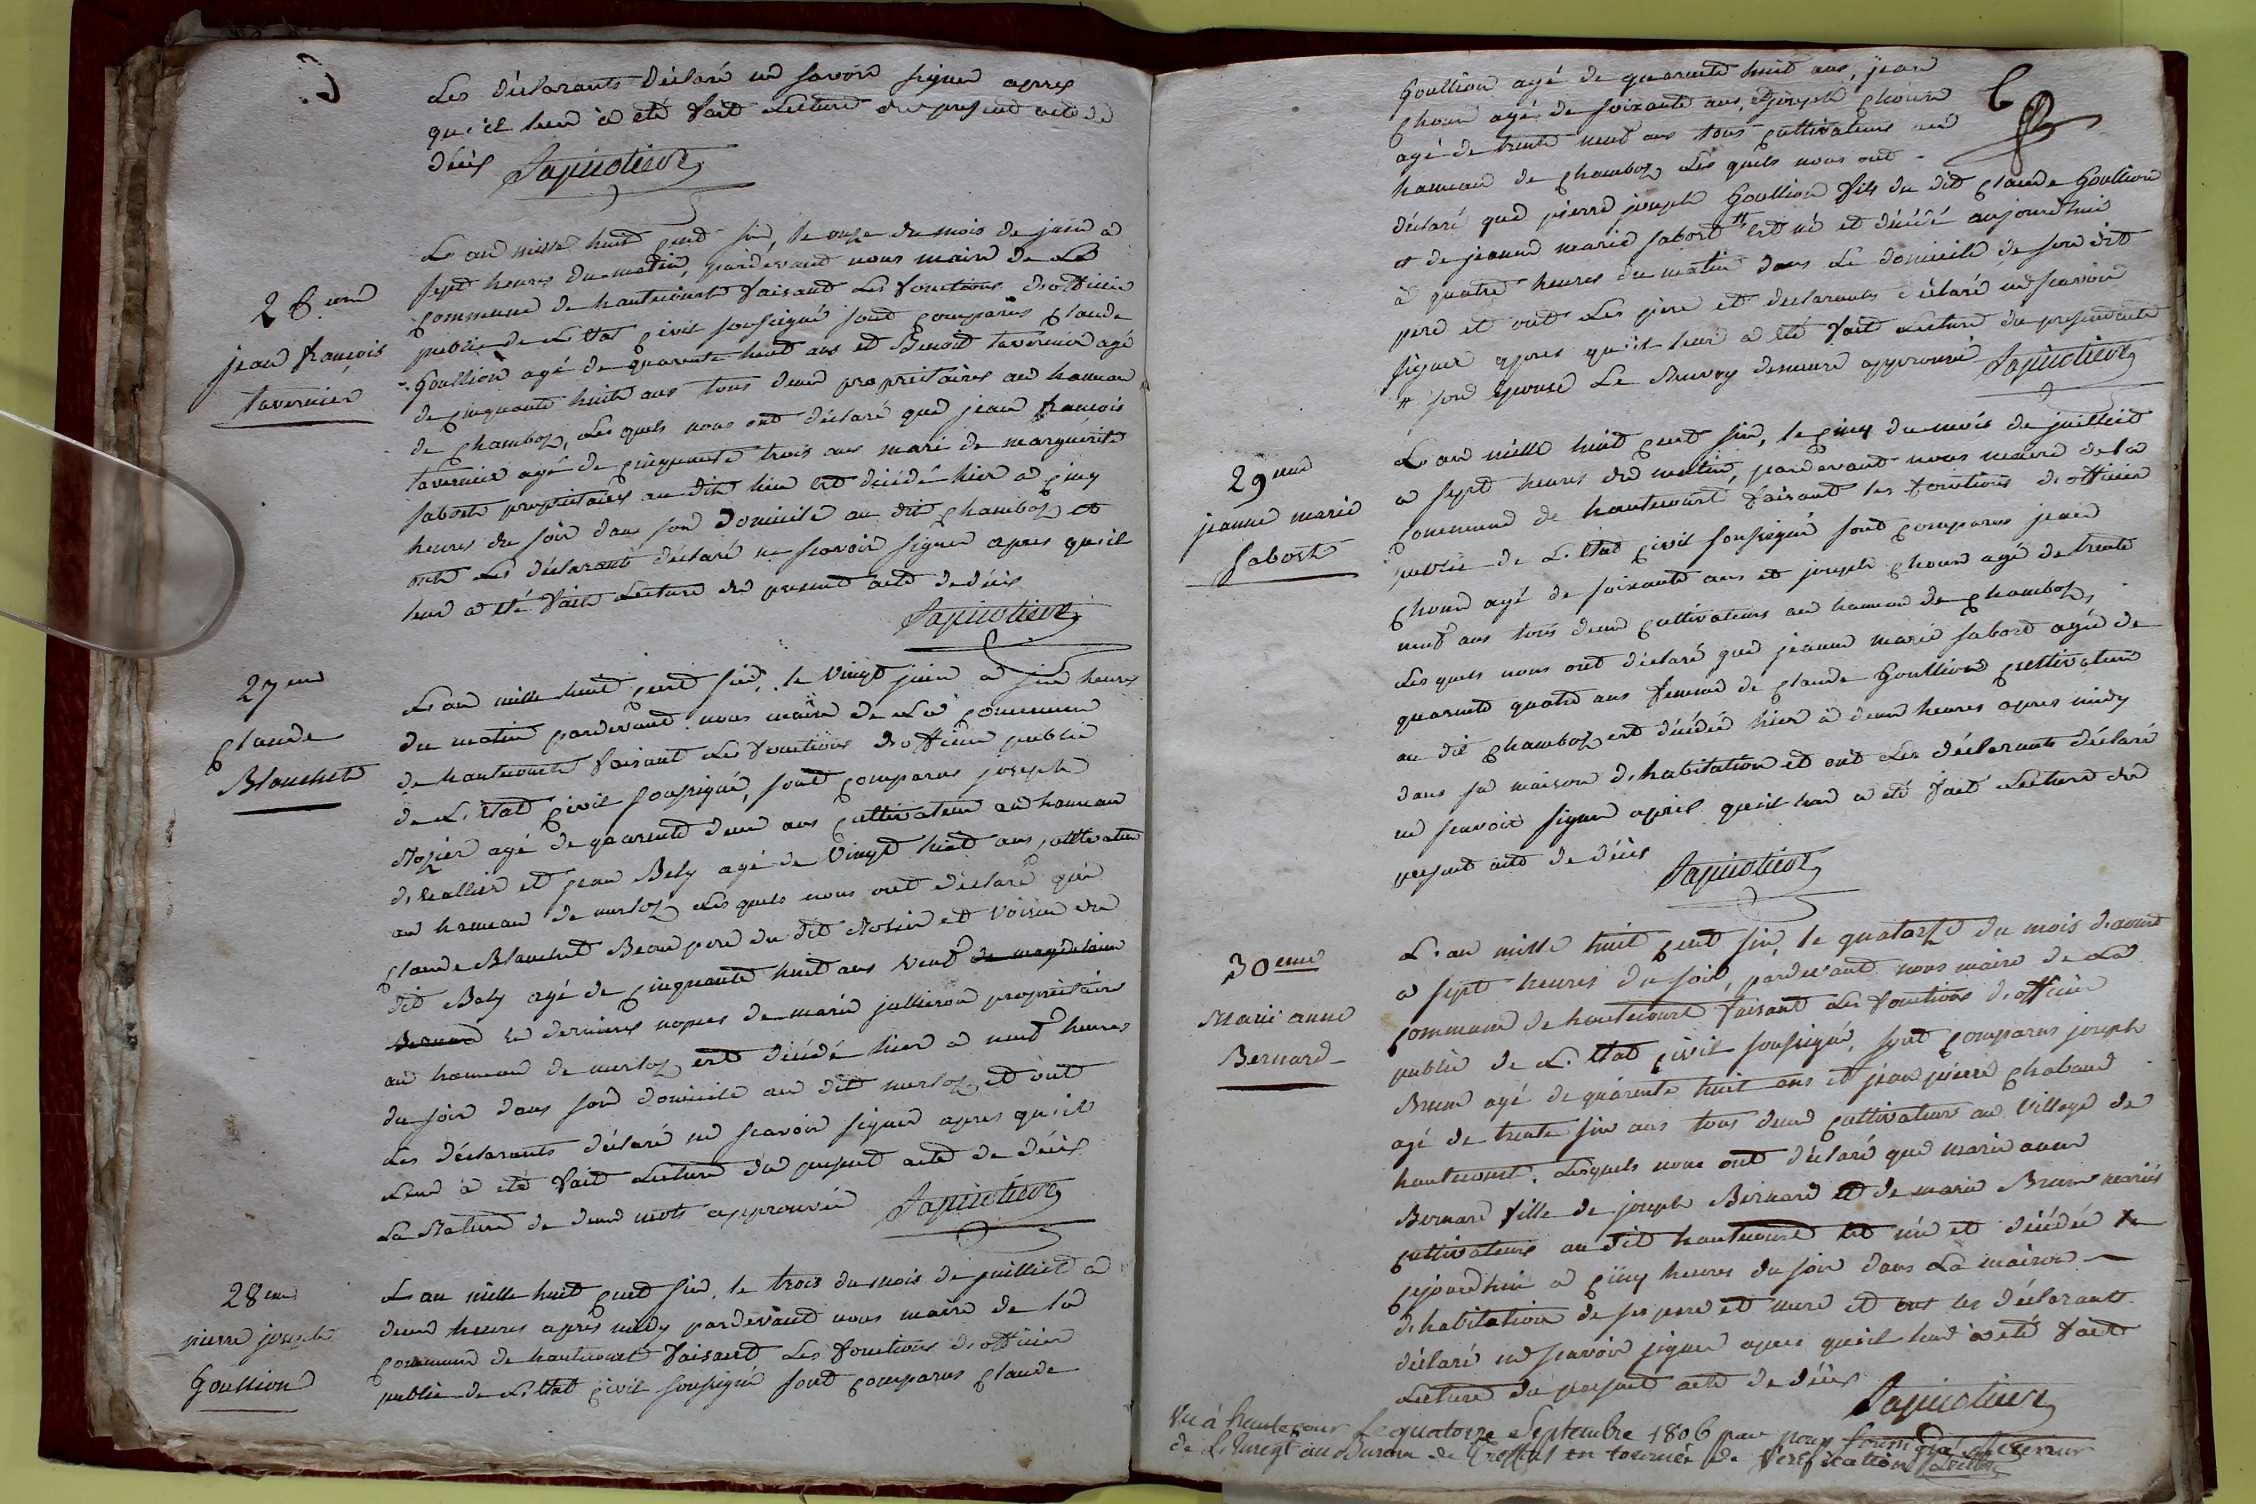 Les déclarants déclaré ne savoir signer apres
qu'il leur a été fait Lecture du present acte de
décés
L'an mille huit cent six, le onze du mois de juin a
sept heures du matin, pardevant nous maire de La
26.eme
commune de hautecourt faisant Les fonctions d'officier
public de L'Etat civil soussigné sont comparus claude
jean françois
Goullion agé de quarente huit ans et Benoit tavernier agé
tavernier
de cinquante huit ans tous deux propriétaires au hameau
de chamboz, Les quels nous ont déclaré que jean françois
tavernier agé de cinquente trois ans mari de marguerite
sabort propriétaires au dit lieu est décédé hier a cinq
heures du soir dans son domicile au dit chamboz et
ont Les déclarants déclaré ne scavoir signer apres qu'il
leur a été fait Lecture du present acte de décés
27eme
claude
Blanchet
L'an mille huit cent six, le vingt juin a six heures
du matin pardevant nous maire de La commune
de hautecourt faisant Les fonctions d'officier public
de L'Etat civil soussigné, sont comparus joseph
Rozier agé de quarente deux ans cultivateur au hameau
d' et jean Bely agé de vingt huit ans cultivateur
au hameau de merloz Les quels nous ont déclaré que
claude Blanchet Beau pere du dit Rosier et voisin du
dit Bely agé de cinquante huit ans veuf de magdelaine
Bernard en dernieres nopces de marie jullieron propriétaire
au hameau de merloz est décédé hier a neuf heures
du soir dans son domicile au dit merloz et ont
Les déclarants déclaré ne scavoir signer apres qu'il
Leur a été fait Lecture du present acte de décés
La Rature de deux mots approuvée
28eme
pierre joseph
Goullion
L'an mille huit cent six, le trois du mois de juilliet a
deux heures apres midy pardevant nous maire de la
commune de hautecourt faisant Les fonctions d'officier
public de L'Etat civil soussigné sont comparus claude
Goullion agé de quarente huit ans, jean
chone agé de soixante ans, et joseph chone
agé de trente neuf ans tous cultivateurs au
hameau de chamboz Les quels nous ont
déclaré que pierre joseph Goullion fils du dit claude Goullion
et de jeanne marie sabort # est né et décédé aujourd'hui
à quatre heures du matin dans Le domicile de son dit
pere et ont Les père et declarants déclaré ne scavoir
signer apres qu'il leur a été fait Lecture du present acte
# son epouse Le Renvoy demeure approuvé
29eme
jeanne marie
sabort
L'an mille huit cent six, le cinq du mois de juilliet
a sept heures du matin, pardevant nous maire de la
commune de hautecourt faisant les fonctions d'officier
public de L'Etat civil soussigné sont comparus jean
chone agé de soixante ans et joseph chone agé de trente
neuf ans tous deux cultivateurs au hameau de chamboz,
Les quels nous ont déclaré que jeanne marie sabort agée de
quarente quatre ans femme de claude Goullion cultivateur
au dit chamboz est décédée hier à deux heures apres midy
dans sa maison d'habitation et ont Les déclarants déclaré
ne scavoir signer apres qu'il leur a été fait Lecture du
present acte de décés
30eme
Marie anne
Bernard
L'an mille huit cent six, le quatorze du mois d'aoust
a sept heures du soir, pardevant nous maire de La
commune de hautecourt faisant Les fonctions d'officier
public de L'Etat civil soussigné, sont comparus joseph
Brun agé de quarente huit ans et jean pierre chaband
agé de trente six ans tous deux cultivateurs au village de
hautecourt. Lesquels nous ont déclaré que marie anne
Bernard fille de joseph Bernard et de marie Brun mariés
cultivateurs au dit hautecourt est née et décédée
cejourd'hui a cinq heures du soir dans La maison
d'habitation de ses pere et mere et ont les déclarants
déclaré ne scavoir signer apres qu'il leur a été fait
Lecture du present acte de décés
Vu à hautecour le quatorze Septembre 1806 par nous soussigné Receveur
de L'Enregt au Bureau de Treffort en tournée de Verification